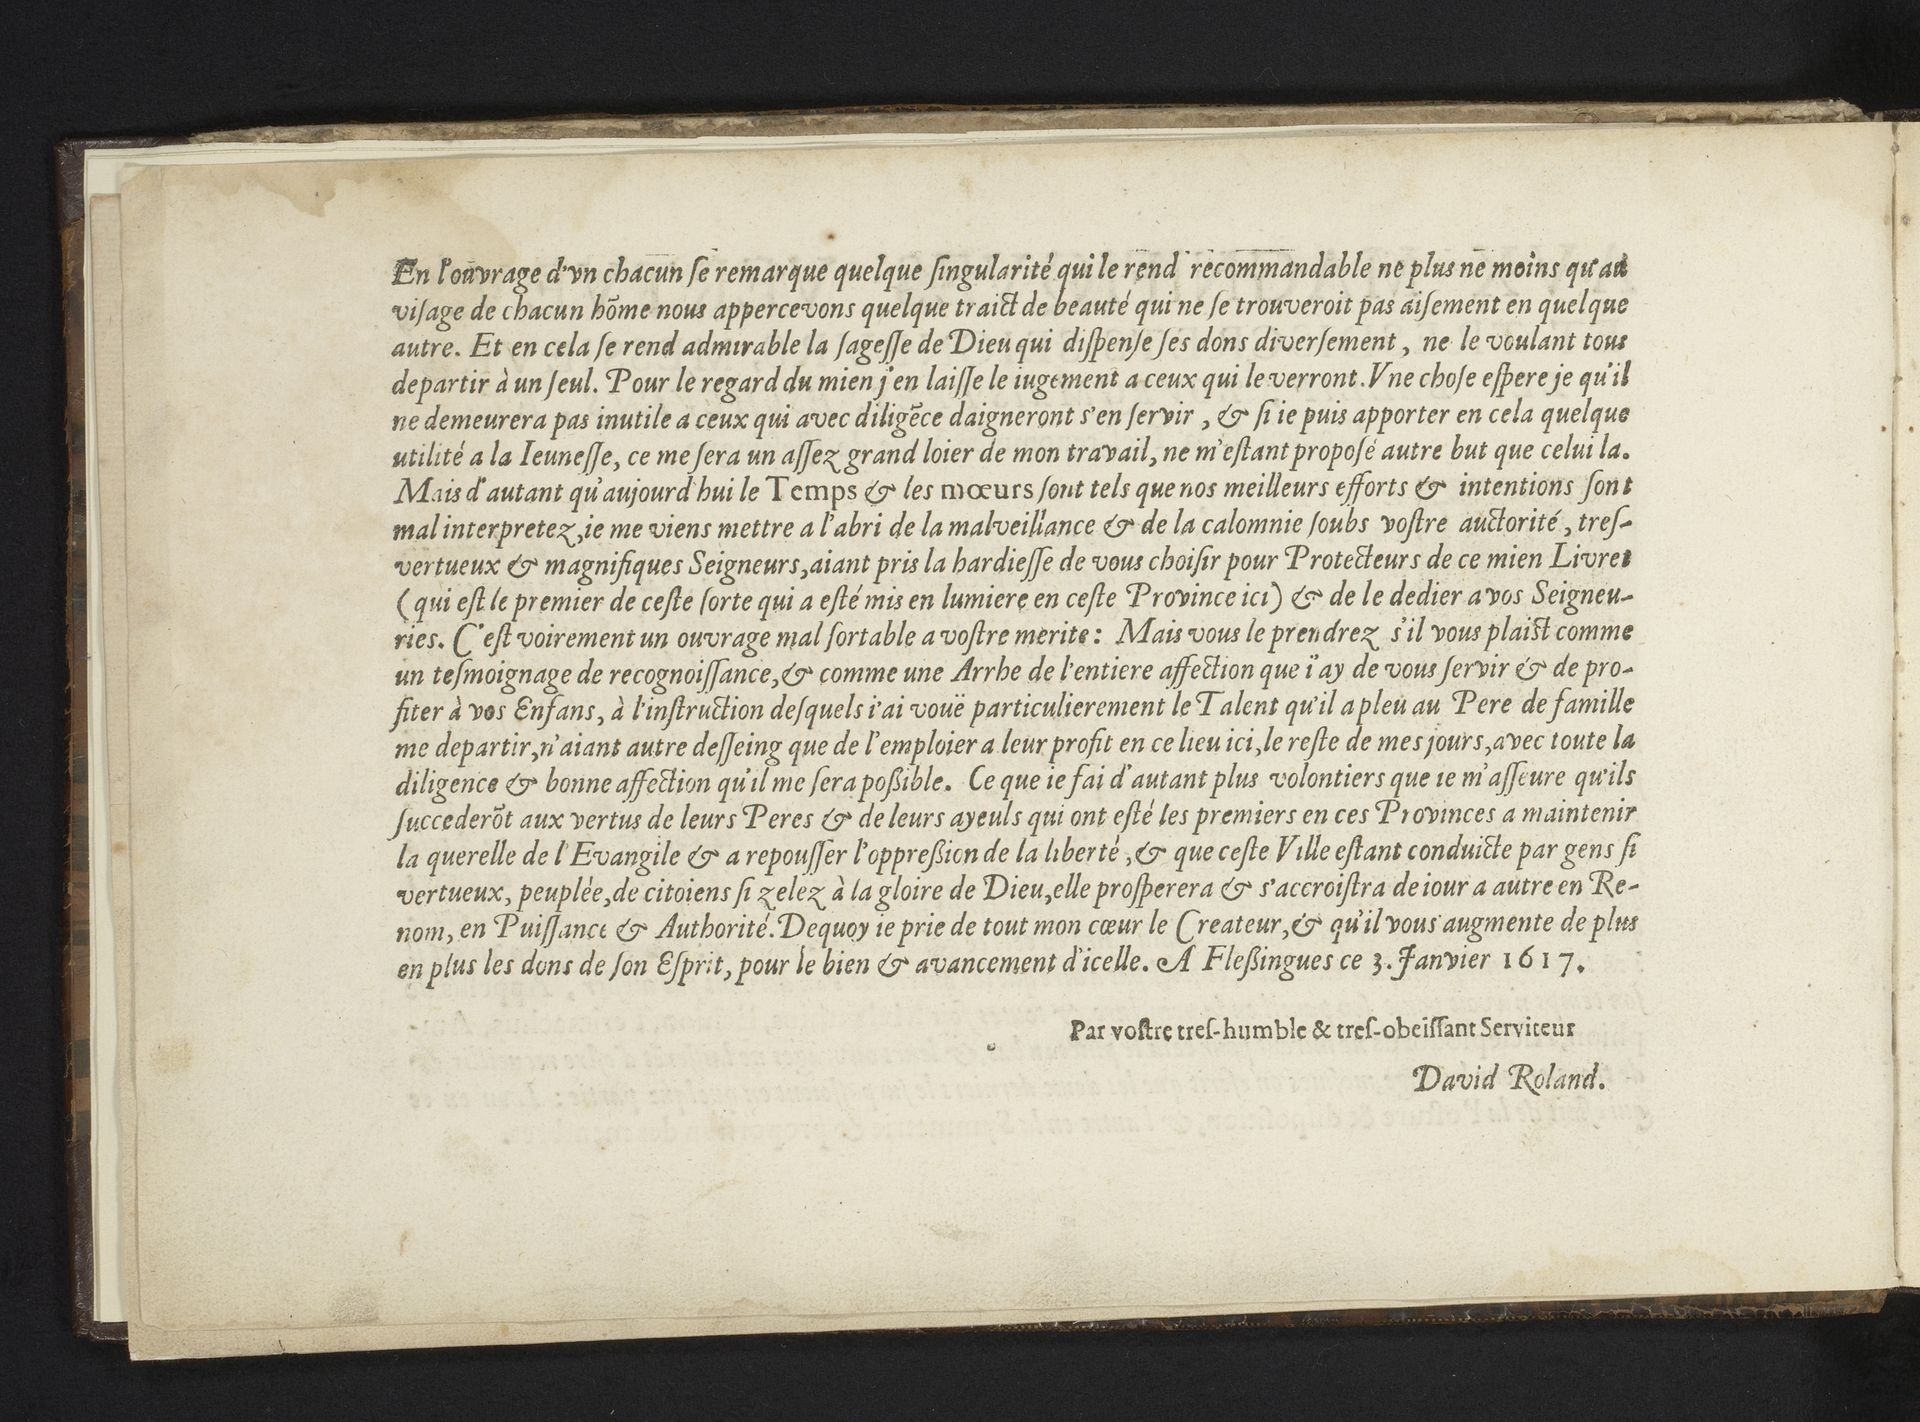 En l'ouvrage d'vn chacun ſe remarque quelque ſingularité qui le rend recommandable ne plus ne moins qu'au
viſage de chacun hõme nous appercevons quelque traict de beauté qui ne ſe trouveroit pas aiſement en quelque
autre. Et en cela ſe rend admirable la ſageſſe de Dieu qui diſpenſe ſes dons diverſement, ne le voulant tous
departir à un ſeul. Pour le regard du mien j'en laiſſe le iugement a ceux qui le verront. Vne choſe eſpere je qu'il
ne demeurera pas inutile a ceux qui avec diligẽce daigneront s'en ſervir, & ſi ie puis apporter en cela quelque
utilité a la Ieuneſſe, ce me ſera un aſſez grand loier de mon travail, ne m'eſtant propoſé autre but que celui la.
Mais d'autant qu'aujourd'hui le Temps & les mœurs ſont tels que nos meilleurs efforts & intentions ſont
mal interpretez, ie me viens mettre a l'abri de la malveillance & de la calomnie ſoubs voſtre auctorité, treſ-
vertueux & magnifiques Seigneurs, aiant pris la hardieſſe de vous choiſir pour Protecteurs de ce mien Livret
(qui eſt le premier de ceſte ſorte qui a eſté mis en lumiere en ceſte Province ici) & de le dedier a vos Seigneu-
ries. C'eſt voirement un ouvrage mal ſortable a voſtre merite: Mais vous le prendrez s'il vous plaiſt comme
un teſmoignage de recognoiſſance, & comme une Arrhe de l'entiere affection que i'ay de vous ſervir & de pro-
fiter à vos Enfans, à l'inſtruction deſquels i'ai vouë particulierement le Talent qu'il a pleu au Pere de famille
me departir, n'aiant autre deſſeing que de l'emploier a leur profit en ce lieu ici, le reſte de mes jours, avec toute la
diligence & bonne affection qu'il me ſera poßible. Ce que ie fai d'autant plus volontiers que ie m'aſſeure qu'ils
ſuccederõt aux vertus de leurs Peres & de leurs ayeuls qui ont eſté les premiers en ces Provinces a maintenir
la querelle de l'Evangile & a repouſſer l'oppreßion de la liberté, & que ceſte Ville eſtant conduicte par gens ſi
vertueux, peuplée, de citoiens ſi zelez à la gloire de Dieu, elle proſperera & s'accroiſtra de iour a autre en Re-
nom, en Puiſſance & Authorité. Dequoy ie prie de tout mon cœur le Createur, & qu'il vous augmente de plus
en plus les dons de ſon Eſprit, pour le bien & avancement d'icelle. A Fleßingues ce 3. Janvier 1617.
Par voſtre treſ-humble & treſ-obeiſſant Serviteur
David Roland.